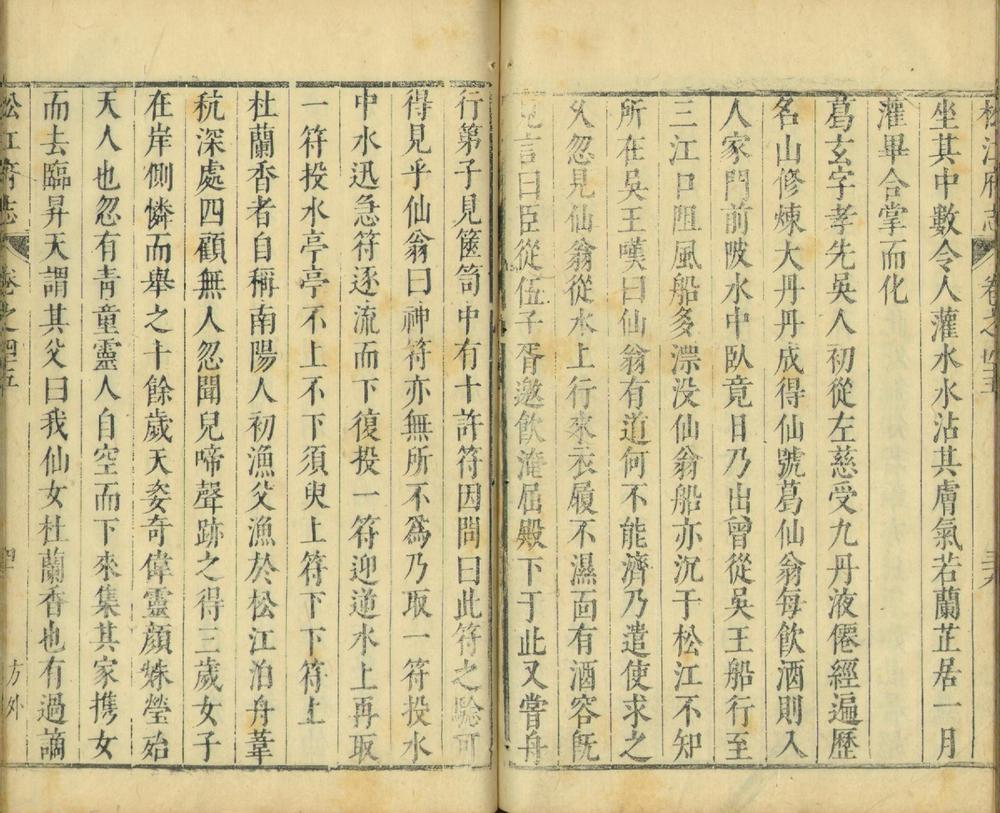 松江府志 卷之四五
坐其中數令人灌水水沾其膚氣若蘭芷居一月
灌畢合掌而化
葛玄字孝先吳人初從左慈受九丹液僊經遍歷
名山修煉大丹丹成得仙號葛仙翁每飲酒則入
人家門前陂水中臥竟日乃出曾從吳王船行至
三江口阻風船多漂没仙翁船亦沉于松江不知
所在吳王嘆曰仙翁有道何不能濟乃遣使求之
久忽見仙翁從水上行來衣履不濕面有酒容旣
見言曰臣從伍子胥邀飲淹屈殿下于此又嘗舟
行第子見篋笥中有十許符因問曰此符之驗可
得見乎仙翁曰神符亦無所不爲乃取一符投水
中水迅急符逐流而下復投一符迎逆水上再取
一符投水亭亭不上不下須臾上符下下符上
杜蘭香者自稱南陽人初漁父漁於松江泊舟葦
秔深處四顧無人忽聞兒啼聲跡之得三歲女子
在岸側憐而舉之十餘歲天姿奇偉靈顔姝瑩殆
天人也忽有青童靈人自空而下來集其家携女
而去臨昇天謂其父曰我仙女杜蘭香也有過謫
松江府志 卷之四五 方外